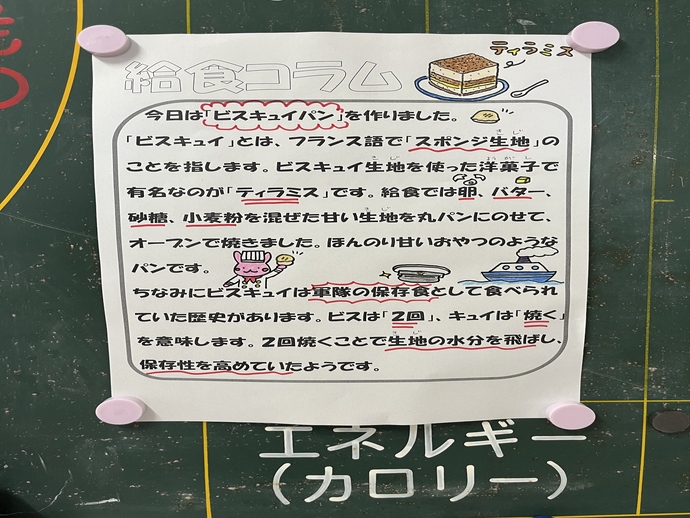 ティラミス
給食コラム
今日は「ビスキュイパン」を作りました。
「ビスキュイ」とは、フランス語で「スポンジ生地」の
ことを指します。ビスキュイ生地を使った洋菓子で
有名なのが「ティラミス」です。給食では卵、バター、
砂糖、小麦粉を混ぜた甘い生地を丸パンにのせて、
オーブンで焼きました。ほんのり甘いおやつのような
パンです。
ちなみにビスキュイは軍隊の保存食として食べられ
ていた歴史があります。ビスは「2回」、キュイは「焼く」
を意味します。2回焼くことで生地の水分を飛ばし、
保存性を高めていたようです。
エネルギー
(カロリー)